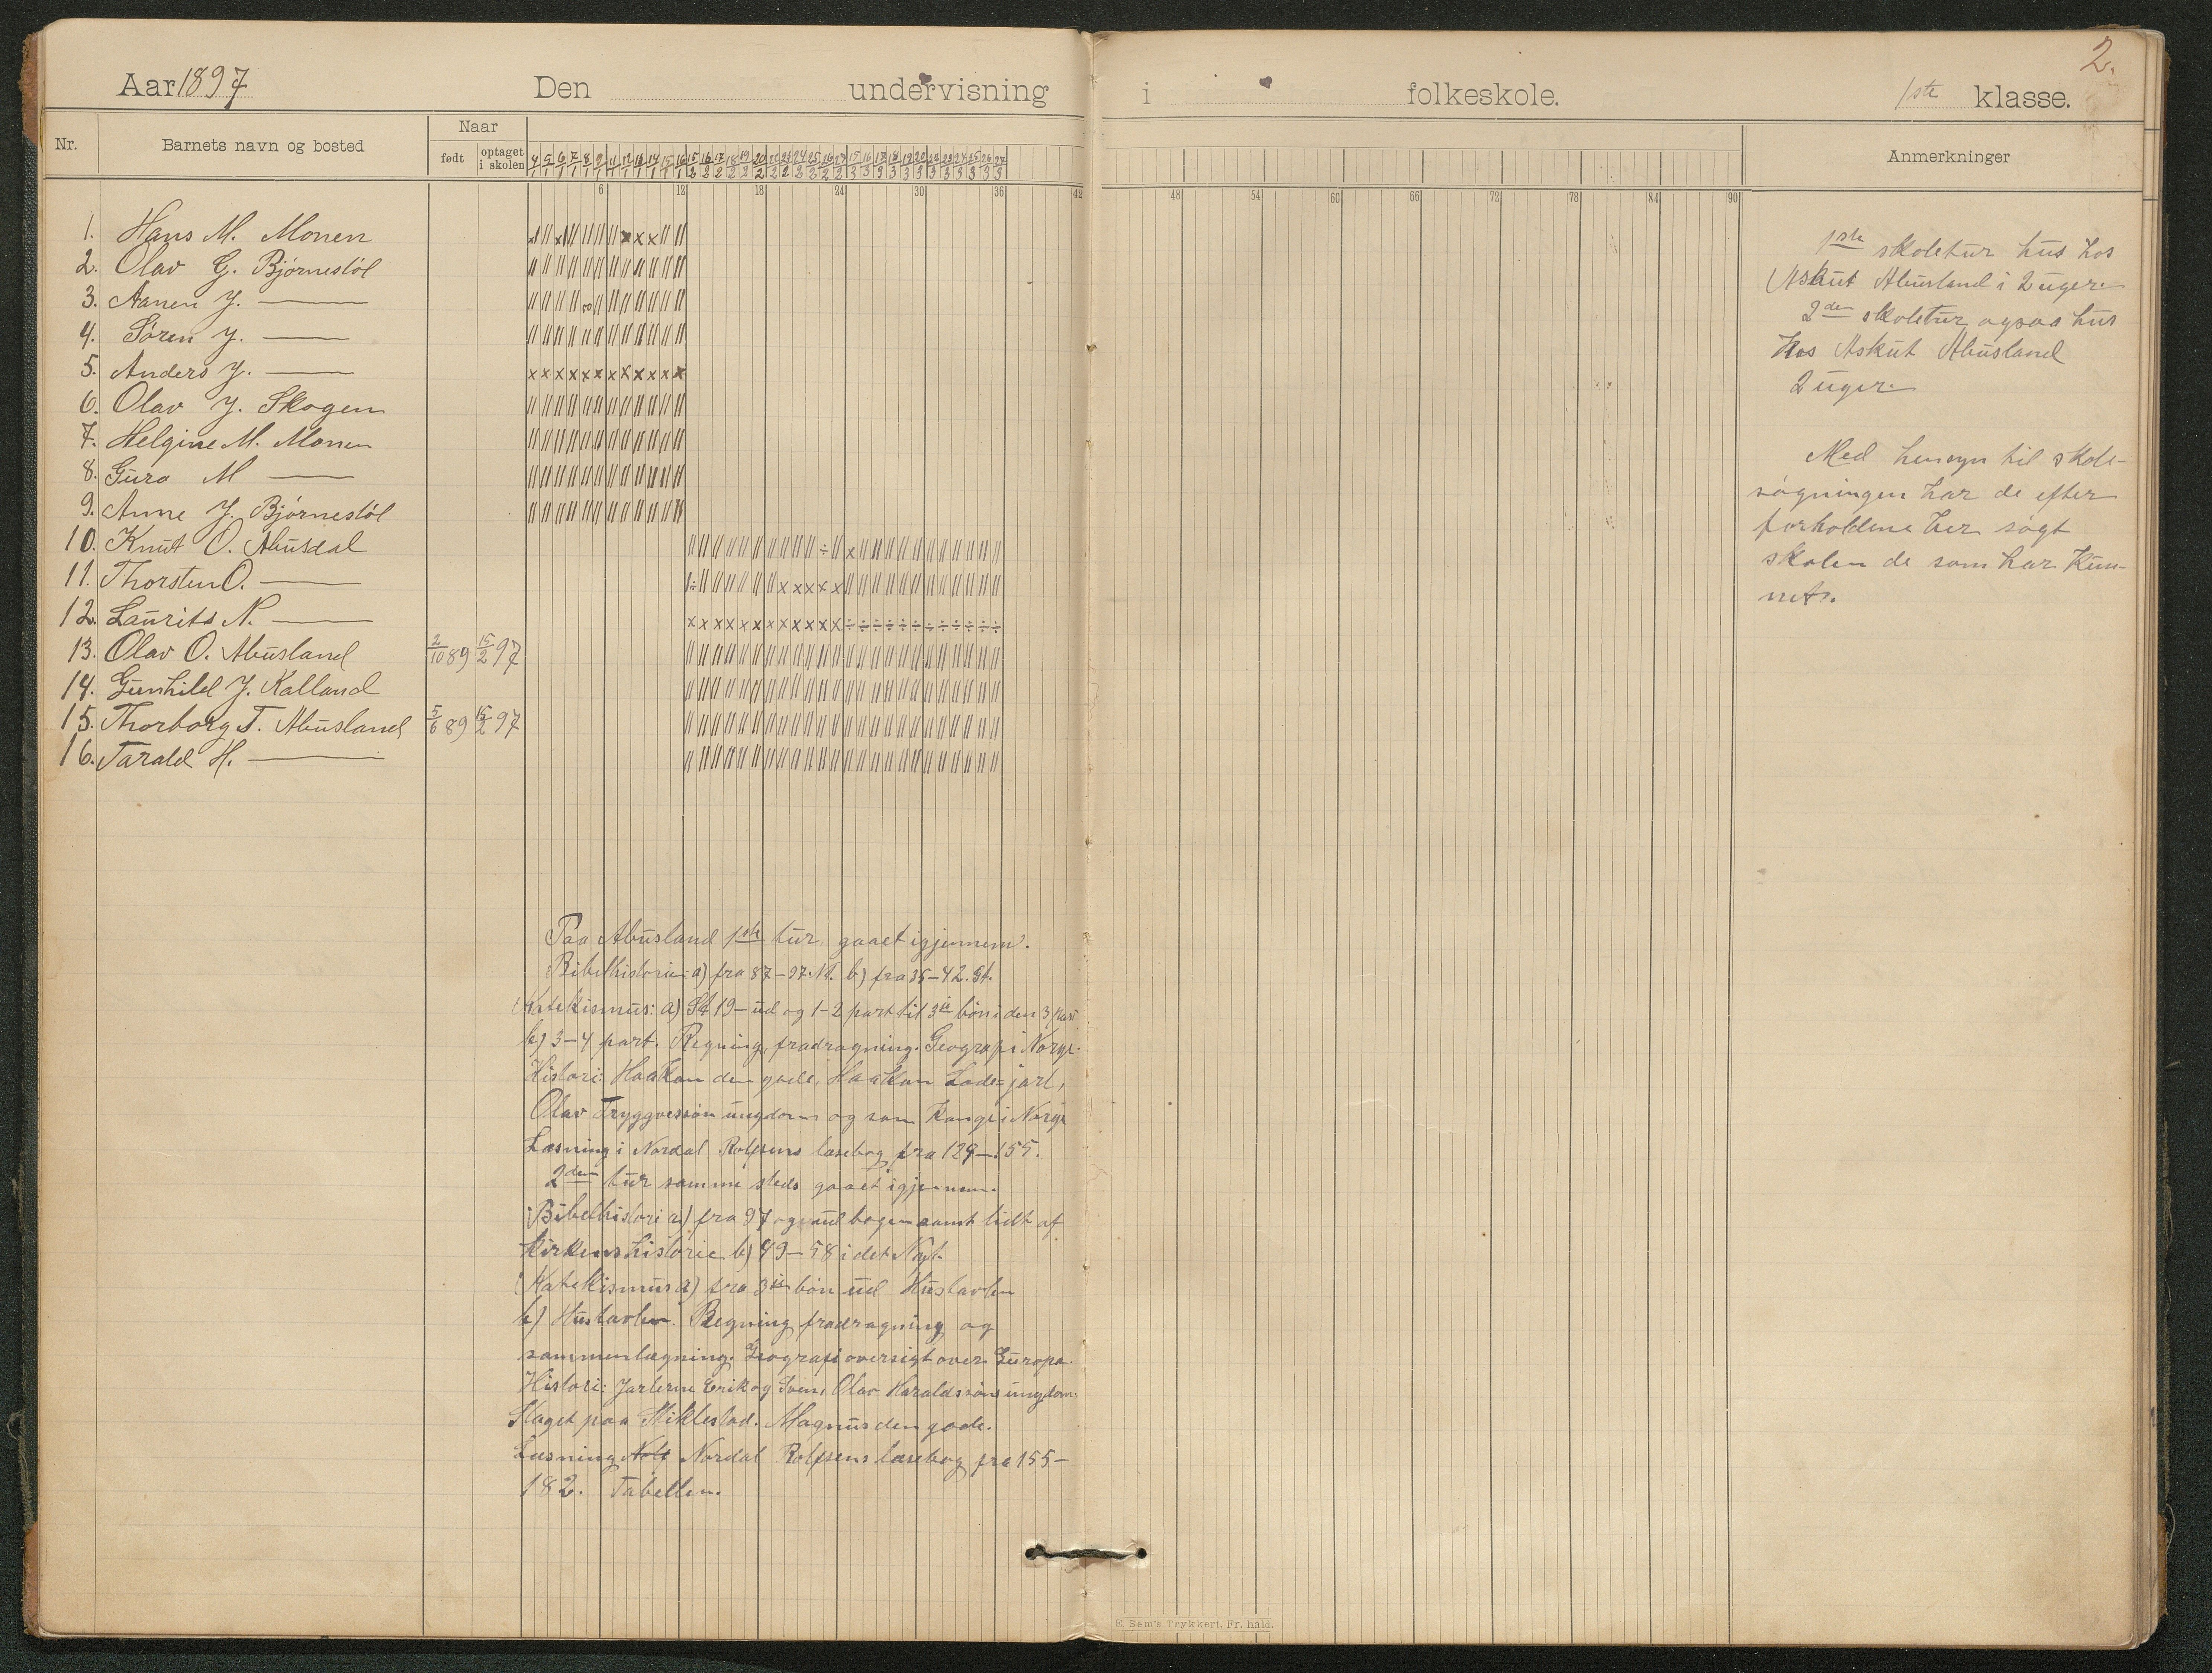 2.
Aar 1897 Den undervisning i folkeskole. 1ste klasse.
Nr. Barnets navn og bosted Naar født optaget i skolen Anmerkninger
6 12 18 24 30 36 42 48 54 60 66 72 78 84 90
1. Hans M. Monen
2. Olav G. Bjørnestøl
3. Aanen J. —
4. Søren J. —
5. Anders J. —
6. Olav J. Skogen
7. Helgine M. Monen
8. Guro M —
9. Anne J. Bjørnestøl
10. Knut O. Abusdal
11. Thorsten O. —
12. Laurits N. —
13. Olav O. Abusland 2/10 89 15/2 97
14. Gunhild J. Kalland
15. Thorborg T. Abusland 5/6 89 15/2 97
16. Tarald H. —
1ste skoletur hus hos
Askut Abusland i 2 uger.
2den skoletur ogsaa hus
hos Askut Abusland
2 uger.
Med hensyn til skole-
søgningen har de efter
forholdene her søgt
skolen de som har kun-
net.
Paa Abusland 1ste tur gaaet igjennem.
Bibelhistorie: a) fra 87–97. b) fra 35–42. Gt.
Katekismus: a) St 19– ud og 1–2 part til 3die bøn i den 3 part
b) 3–4 part. Regning, fradragning. Geografi Norge.
Histori: Haakon den gode, Haakon Lade-jarl,
Olav Tryggvessøn ungdom og som Konge i Norge
Læsning i Nordal Rolfsens læsebog fra 129–155.
2den tur samme steds gaaet igjennem.
Bibelhistori a) fra 97 og ud bogen samt lidt af
kirkens historie b) 49–58 i det Nyt.
Katekismus a) fra 3die bøn ud Hustavlen
b) Hustavlen. Regning fradragning og
sammenlægning. Geografi oversigt over Europa.
Histori: Jarlerne Erik og Svein, Olav Haraldssøns ungdom.
Slaget paa Stiklestad. Magnus den gode.
Læsning Nordal Rolfsens læsebog fra 155–
182. Tabellen.
E. Sem's Trykkeri, Fr.hald.